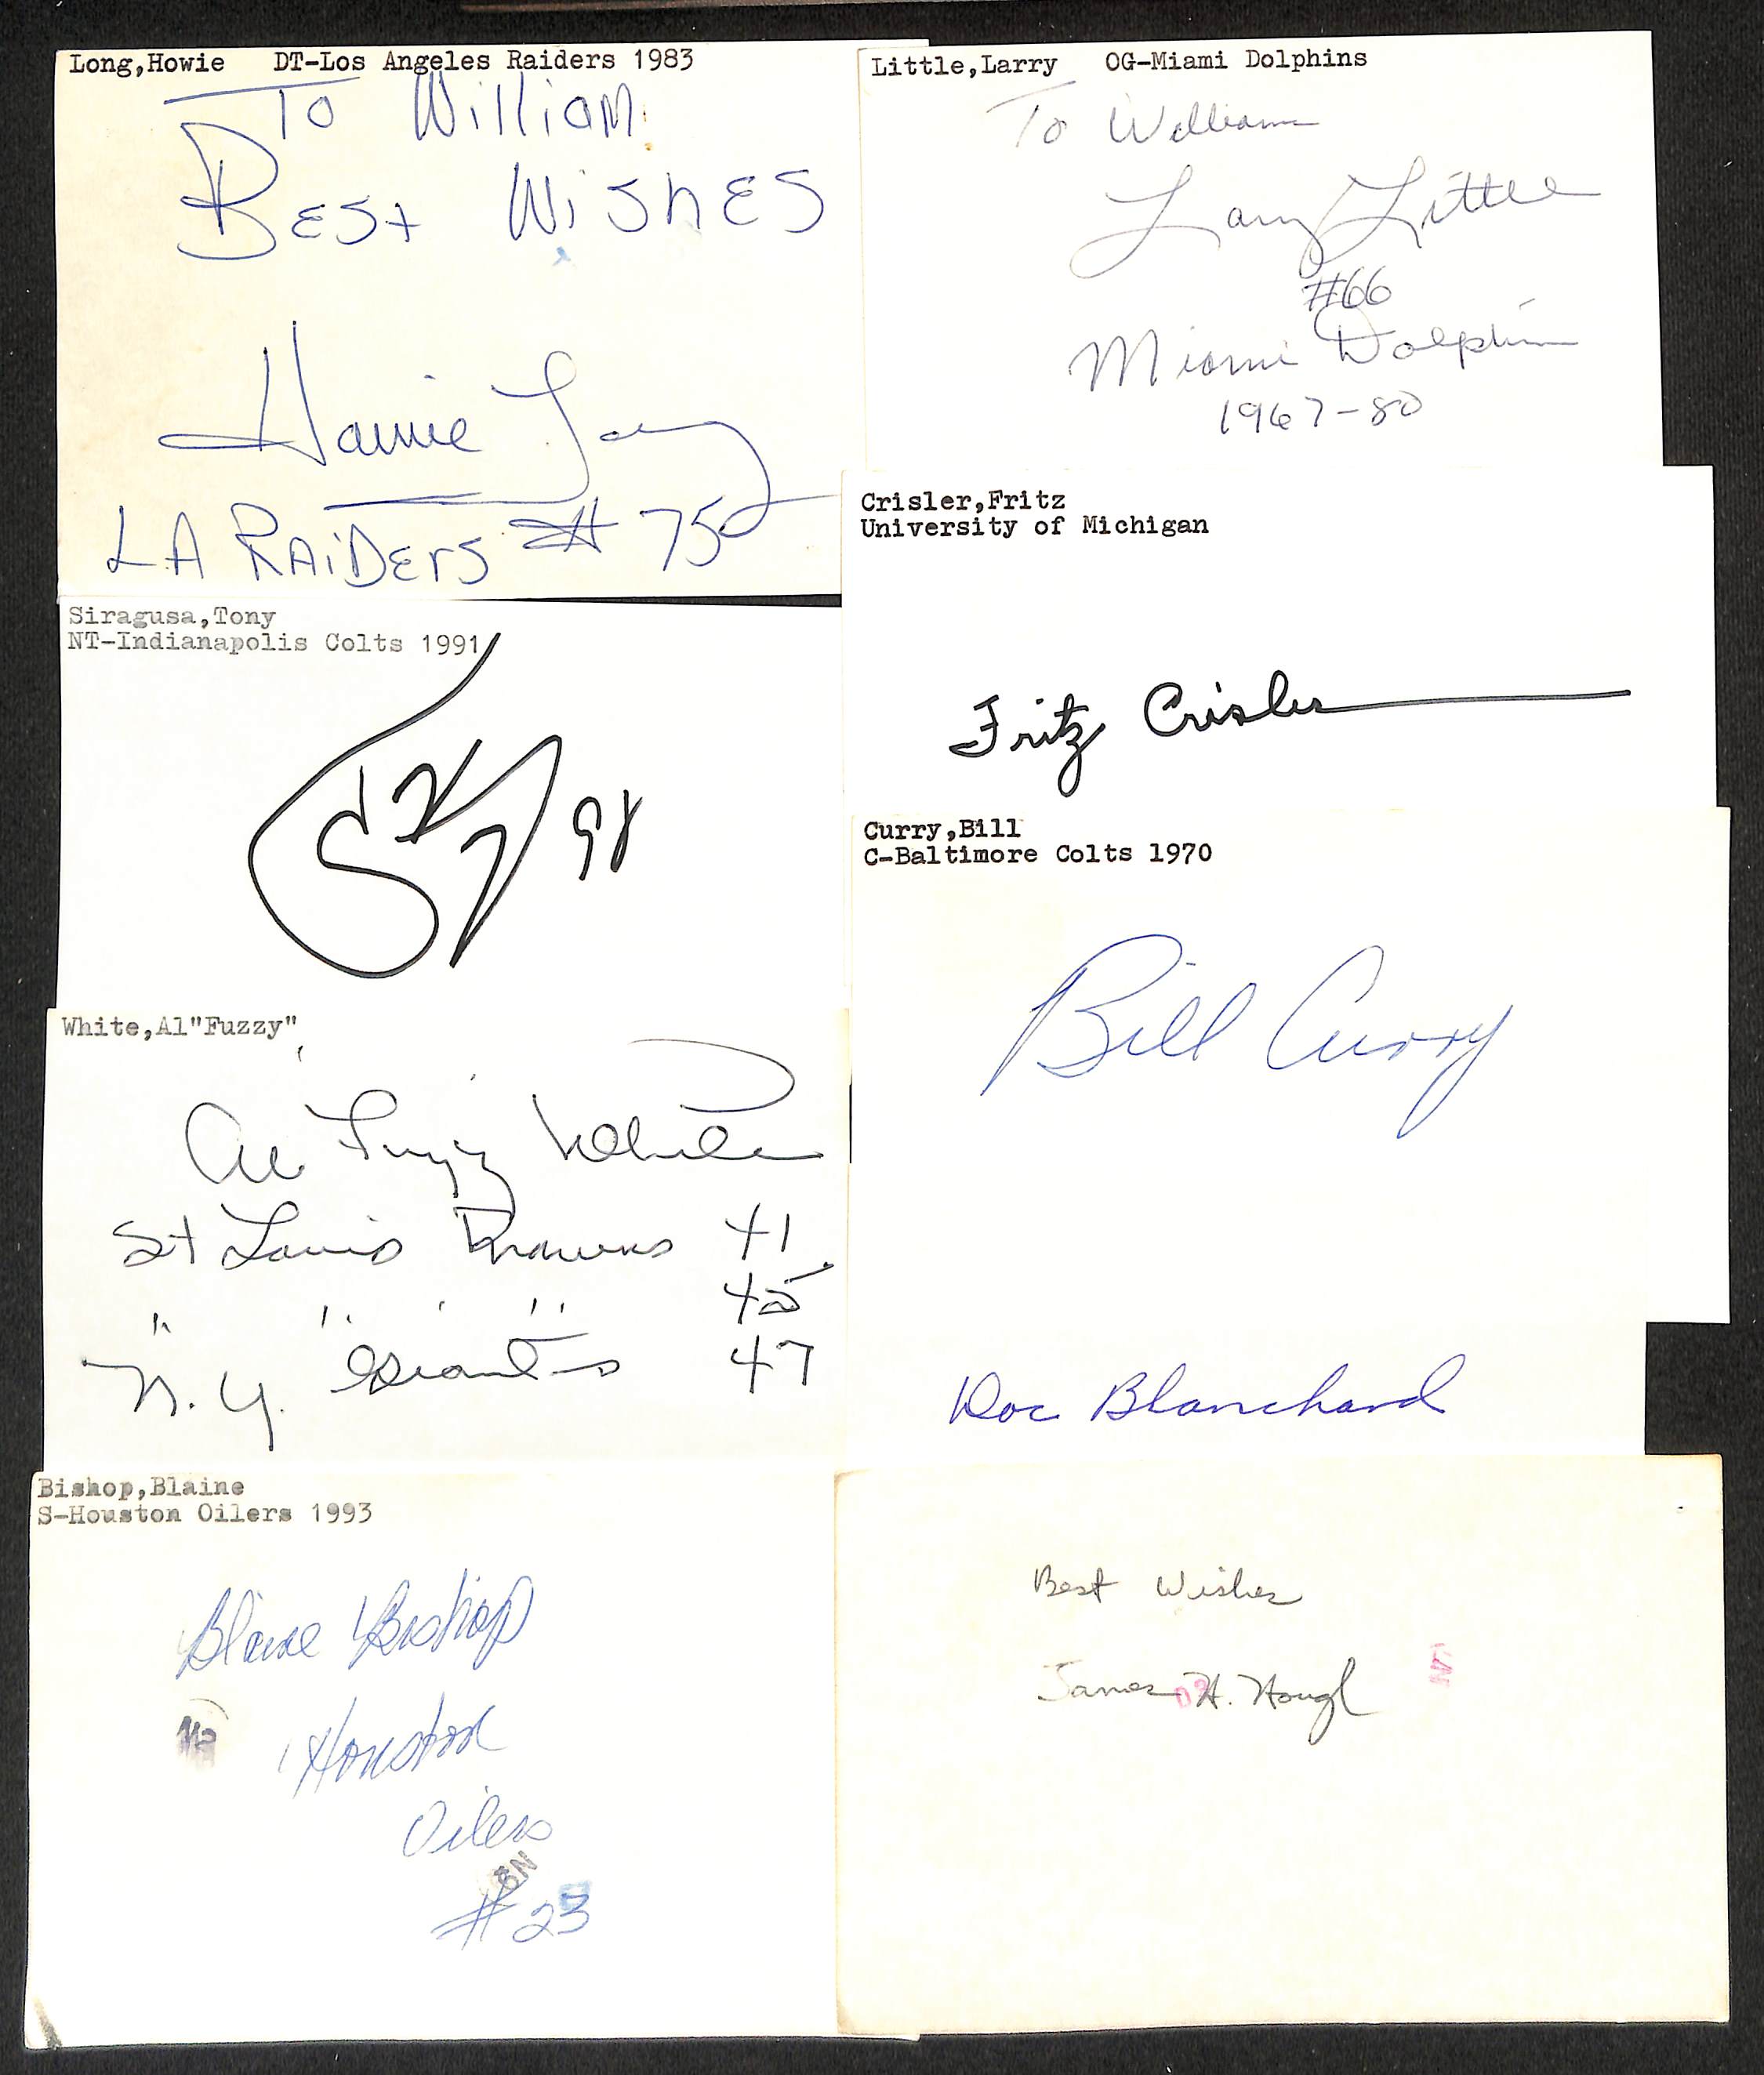 Long,Howie DT-Los Angeles Raiders 1983
To William
Best Wishes
Howie Long
LA RAiDErS # 75
Little,Larry OG-Miami Dolphins
To William
Larry Little
#66
Miami Dolphins
1967-80
Siragusa,Tony
NT-Indianapolis Colts 1991
98
Crisler,Fritz
University of Michigan
Fritz Crisler
Curry,Bill
C-Baltimore Colts 1970
Bill Curry
White,Al"Fuzzy"
Al Fuzzy White
St Louis Browns 41
" " " 45
N.Y. Giants 47
Doc Blanchard
Bishop,Blaine
S-Houston Oilers 1993
Blaine Bishop
Houston
Oilers
#23
Best Wishes
James H.